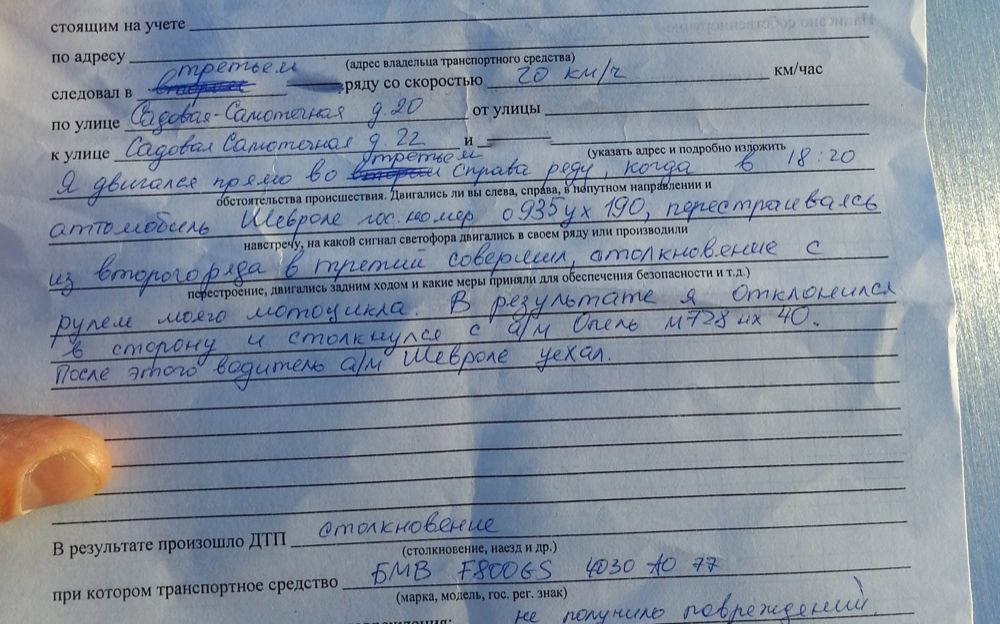 стоящим на учете
по адресу
(адрес владельца транспортного средства)
третьем
следовал в втором ряду со скоростью 20 км/ч км/час
по улице Садовая-Самотечная д.20 от улицы
к улице Садовая Самотечная д.22 и
(указать адрес и подробно изложить
третьем
Я двигался прямо во втором справа ряду, когда в 18:20
обстоятельства происшествия. Двигались ли вы слева, справа, в попутном направлении и
аттомобиль Шевроле гос.номер о935ух190, перестраиваясь
навстречу, на какой сигнал светофора двигались в своем ряду или производили
из второго ряда в третий совершил, столкновение с
перестроение, двигались задним ходом и какие меры приняли для обеспечения безопасности и т.д.)
рулем моего мотоцикла. В результате я отклонился
в сторону и столкнулся с а/м Опель м728нх 40.
После этого водитель а/м Шевроле уехал.
В результате произошло ДТП столкновение
(столкновение, наезд и др.)
при котором транспортное средство БМВ F800GS 4030 АО 77
(марка, модель, гос. рег. знак)
не получило повреждений